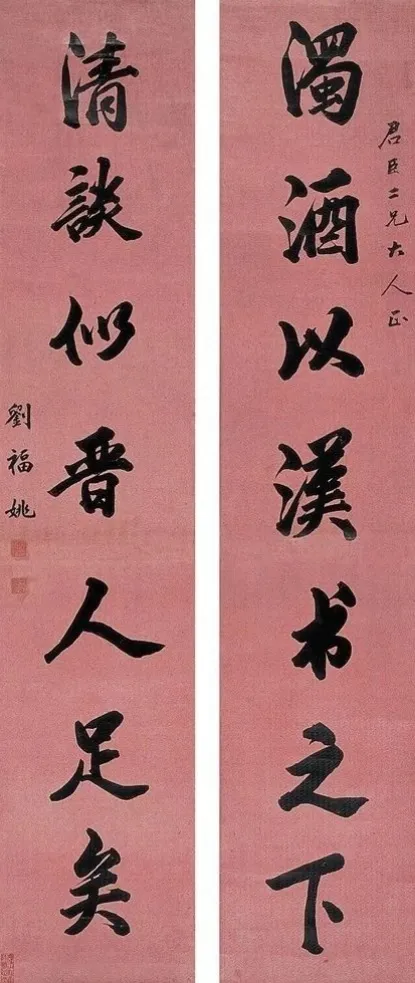 君臣二兄大人正
濁酒以漢书之下
清談似晋人足矣
劉福姚